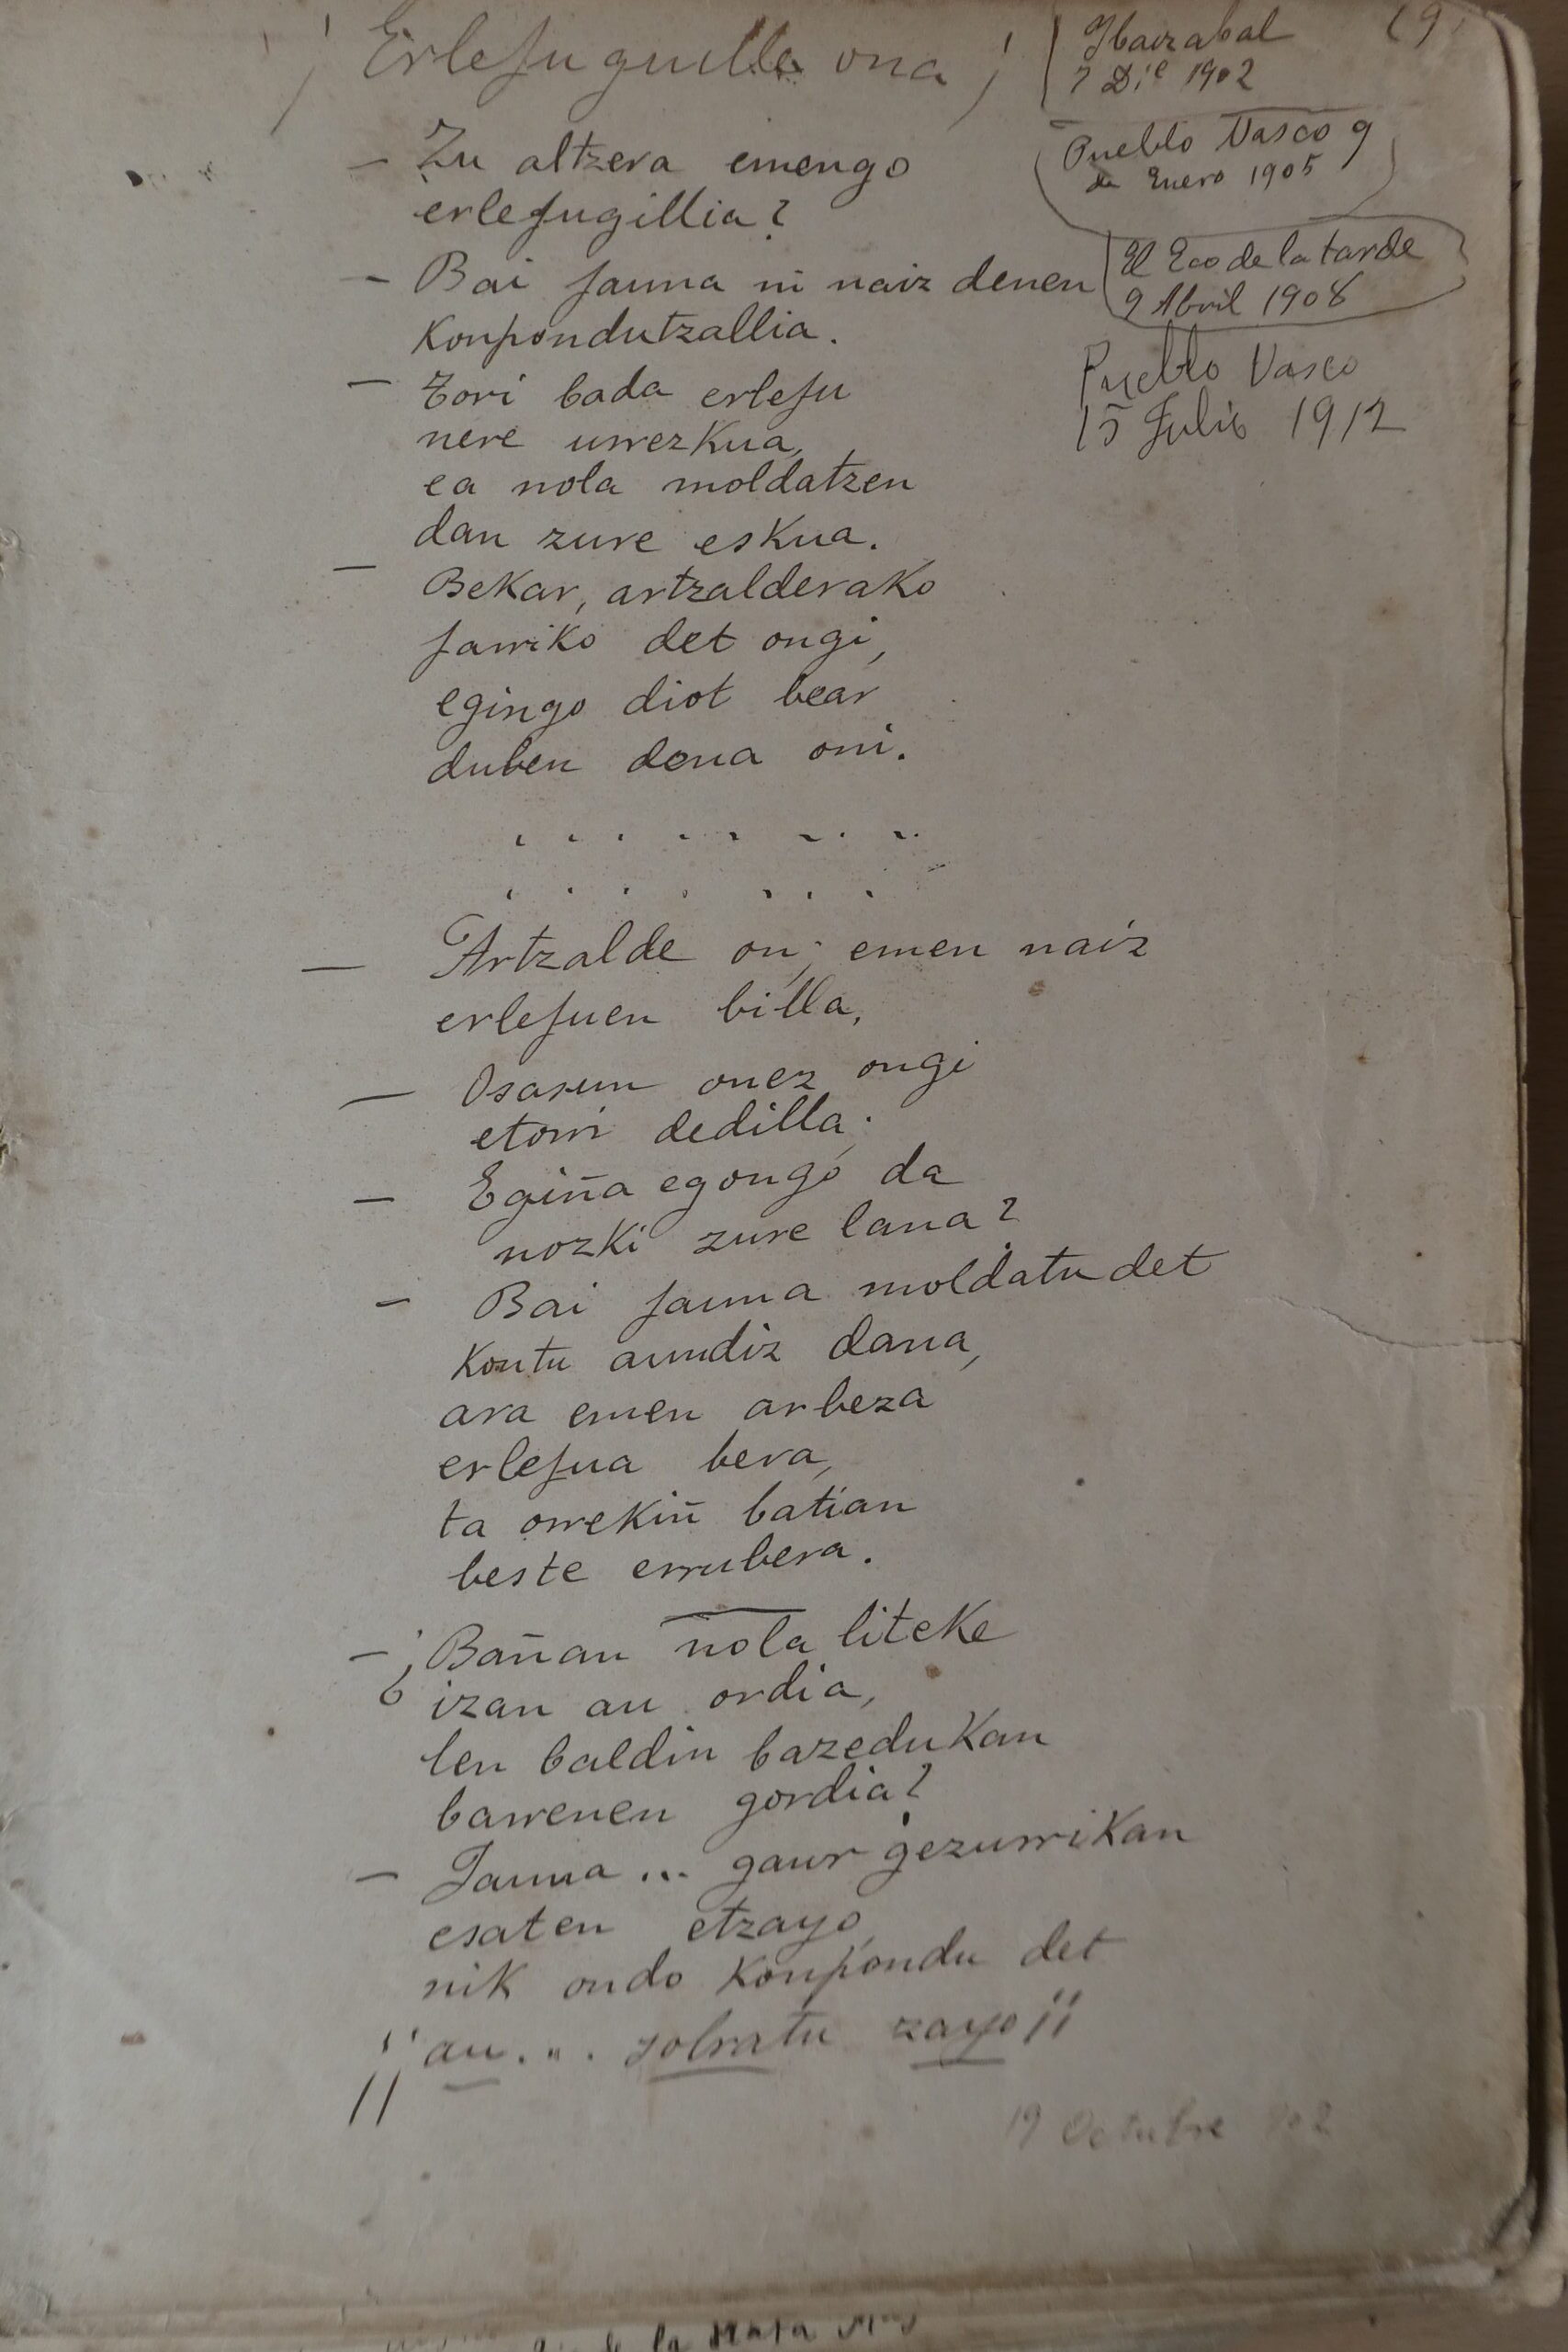 ¡Erlejuguille ona!
Ibaizabal
7 Dic 1902
(9)
Pueblo Vasco 9
de Enero 1905
El Eco de la tarde
9 Abril 1908
Pueblo Vasco
15 Julio 1912
— Zu altzera emengo
erlejugillia?
— Bai jauna ni naiz denen
Konpondutzallia.
— Tori bada erleju
nere urrezkua,
ea nola moldatzen
dan zure eskua.
— Bekar, artzalderako
jarriko det ongi,
egingo diot bear
duben dena oni.
. . . . . . . .
. . . . . . .
— Artzalde on; emen naiz
erlejuen billa,
— Osasun onez ongi
etorri dedilla;
— Egiña egongo da
nozki zure lana?
— Bai jauna moldatu det
Kontu aundiz dana,
ara emen arbeza
erlejua bera,
ta orrekiñ batian
beste errubera.
— ¿Bañan nola liteke
izan au ordia,
len baldin bazedukan
barrenen gordia?
— Jauna... gaur gezurrikan
esaten etzayo,
nik ondo Konpondu det
¡¡au... sobratu zayo!!
19 Octubre 902
de la Mata